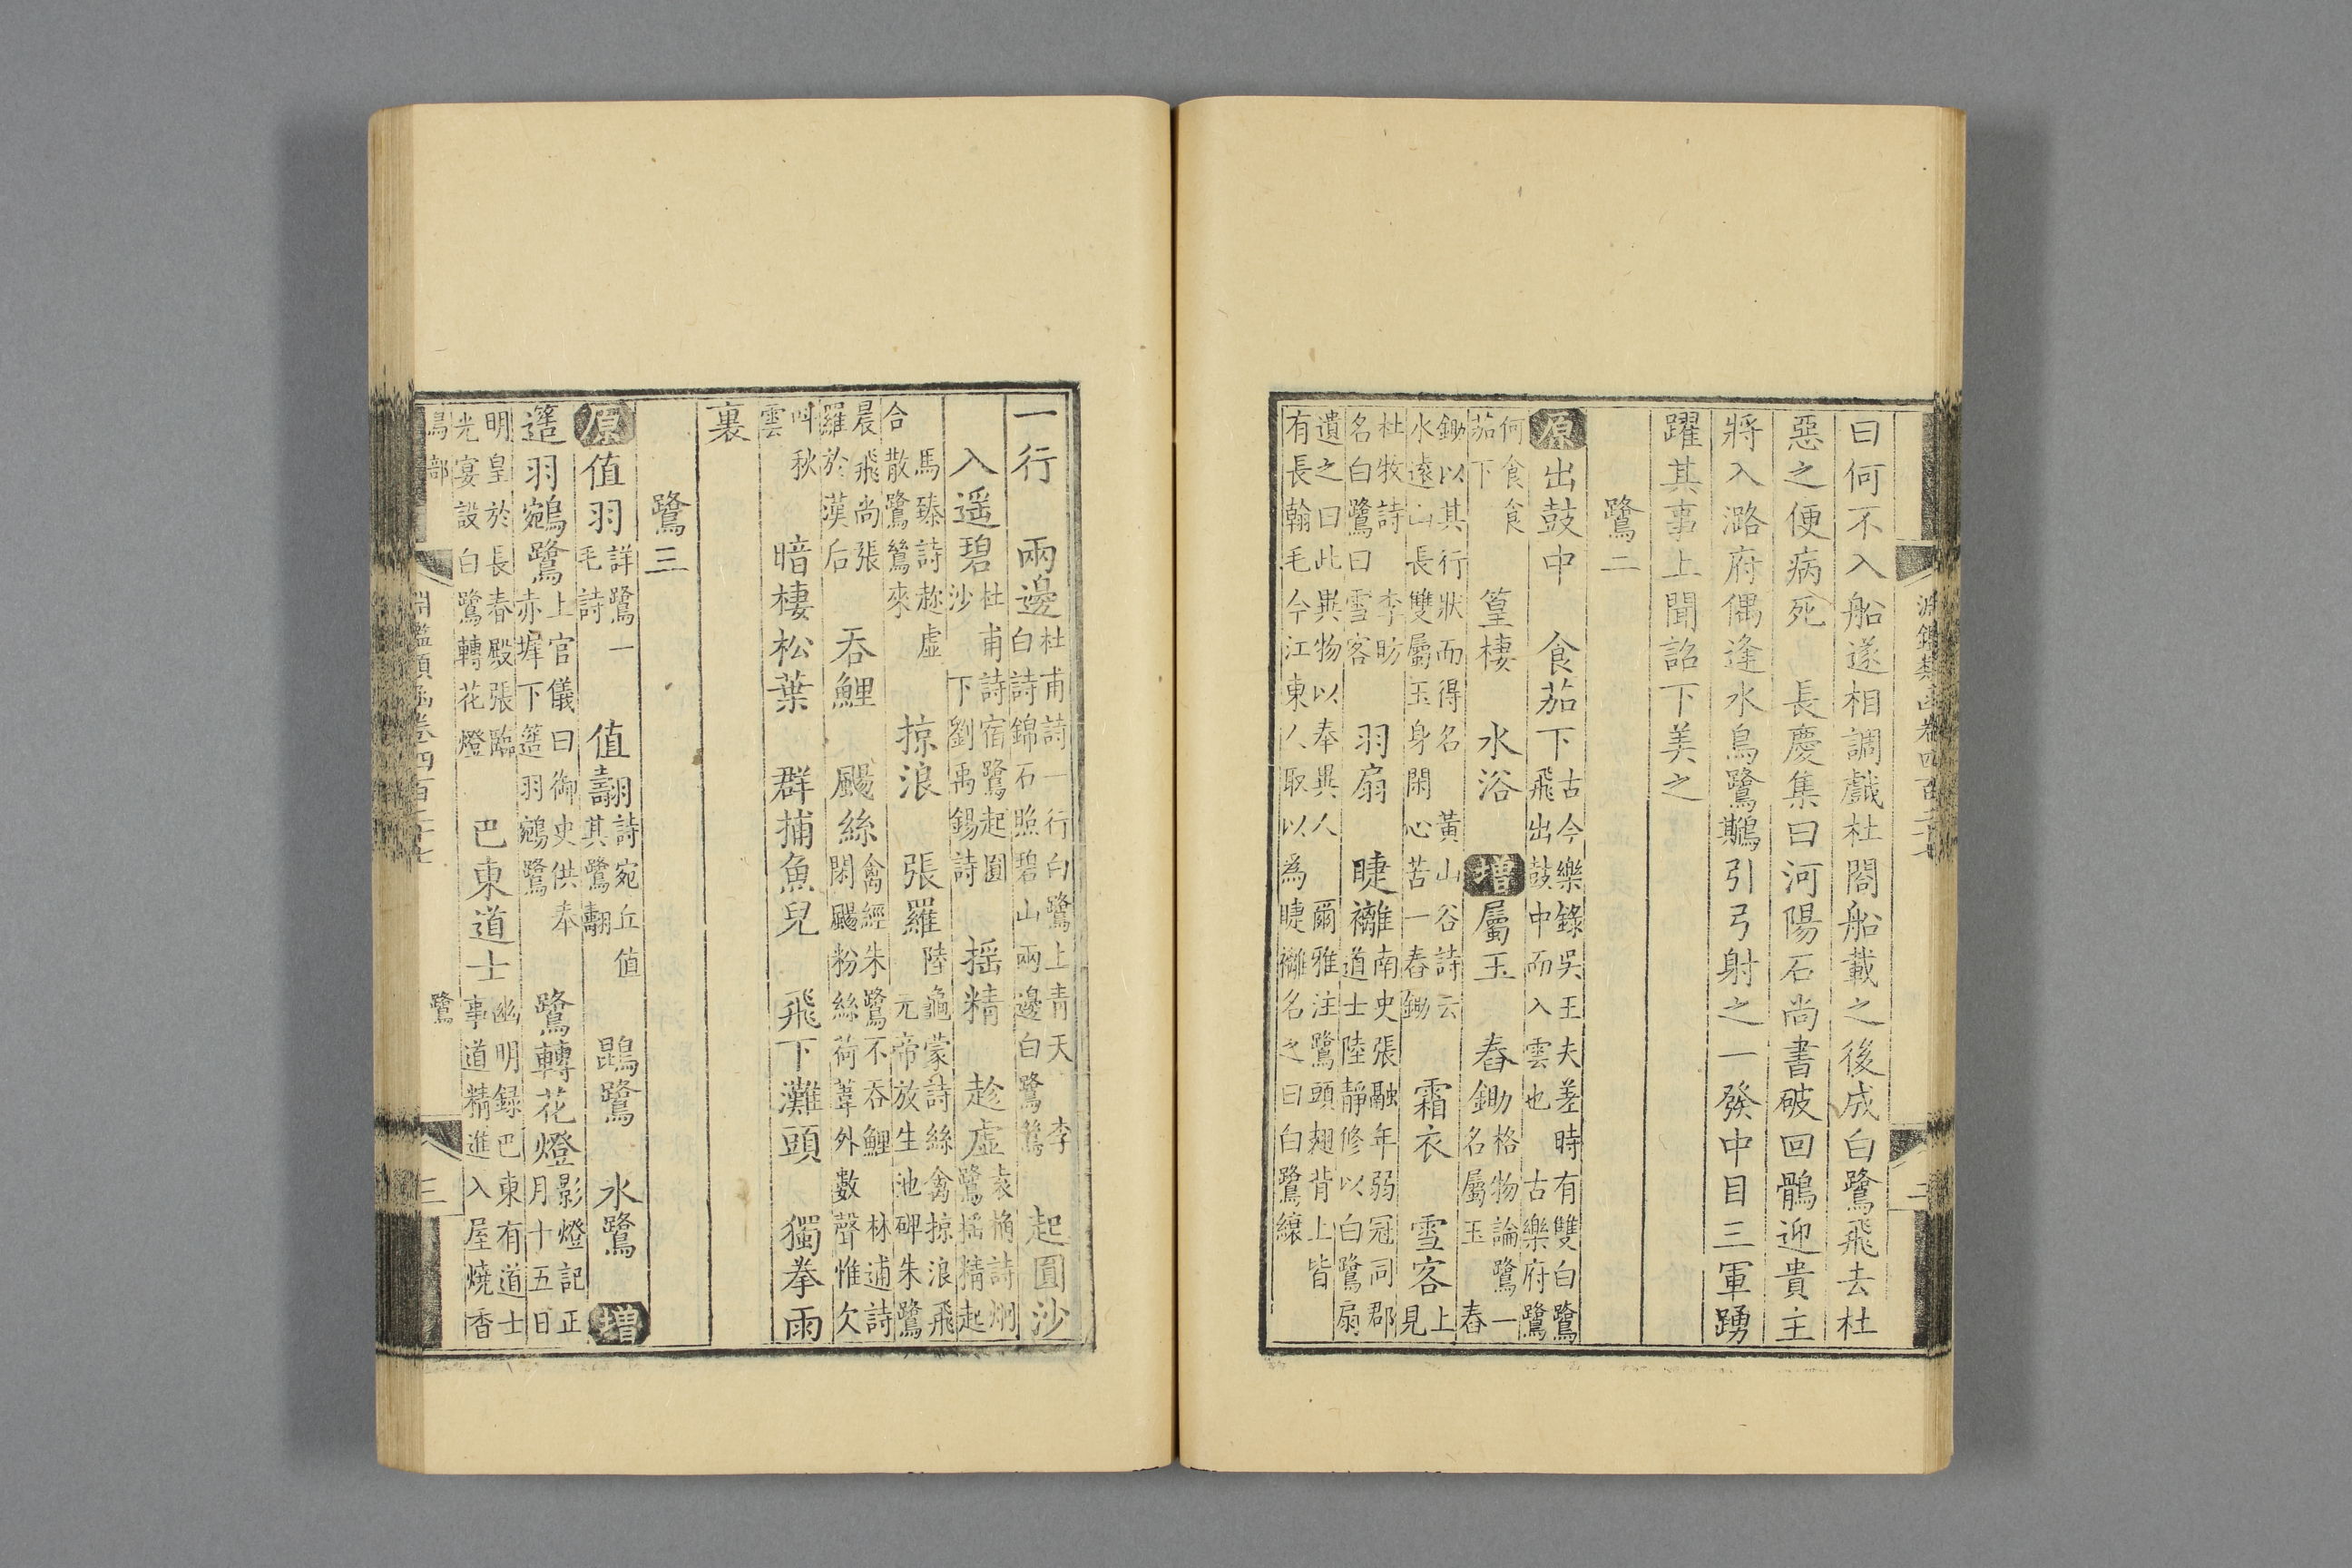 淵鑑類函卷四百二十七
二
曰何不入船遂相調戲杜閤船載之後成白鷺飛去杜
惡之便病死 長慶集曰河陽石尚書破回鶻迎貴主
將入潞府偶逢水鳥鷺鷀引弓射之一發中目三軍踴
躍其事上聞詔下美之
鷺二
原出鼓中 食茄下古今樂錄吳王夫差時有雙白鷺
飛出鼓中而入雲也 古樂府鷺
何食食
茄下 篁棲 水浴 增屬玉 舂鋤格物論鷺一
名屬玉 舂
鋤以其行狀而得名 黃山谷詩云
水遠山長雙屬玉身閑心苦一舂鋤 霜衣 雪客上
見
杜牧詩 李昉
名白鷺曰雪客 羽扇 睫䙰南史張融年弱冠同郡
道士陸靜修以白鷺扇
遺之曰此異物以奉異人 爾雅注鷺頭翅背上皆
有長翰毛今江東人取以為睫䙰名之曰白鷺縗
一行 兩邊杜甫詩一行白鷺上青天 李
白詩錦石照碧山兩邊白鷺鷥 起圓沙
入遥碧杜甫詩宿鷺起圓
沙 下劉禹錫詩 摇精 趁虛袁桷詩烱
鷺摇精起
合 馬臻詩趁虛
散鷺鷥來 掠浪 張羅陸龜蒙詩絲禽掠浪飛
元帝放生池碑朱鷺
晨飛尚張
羅於漢后 吞鯉 颺絲禽經朱鷺不吞鯉 林逋詩
閑颺粉絲荷葦外數聲惟欠
叫秋
雲 暗棲松葉 群捕魚兒 飛下灘頭 獨拳雨
裏
鷺三
原值羽詳鷺一
毛詩 值翿詩宛丘值
其鷺翿 鵾鷺 水鷺 增
簉羽鵷鷺上官儀曰御史供奉
赤墀下簉羽鵷鷺 鷺轉花燈影燈記正
月十五日
明皇於長春殿張臨
光宴設白鷺轉花燈 巴東道士幽明録巴東有道士
事道精進入屋燒香
淵鑑類函卷四百二十七
鳥部 鷺
三